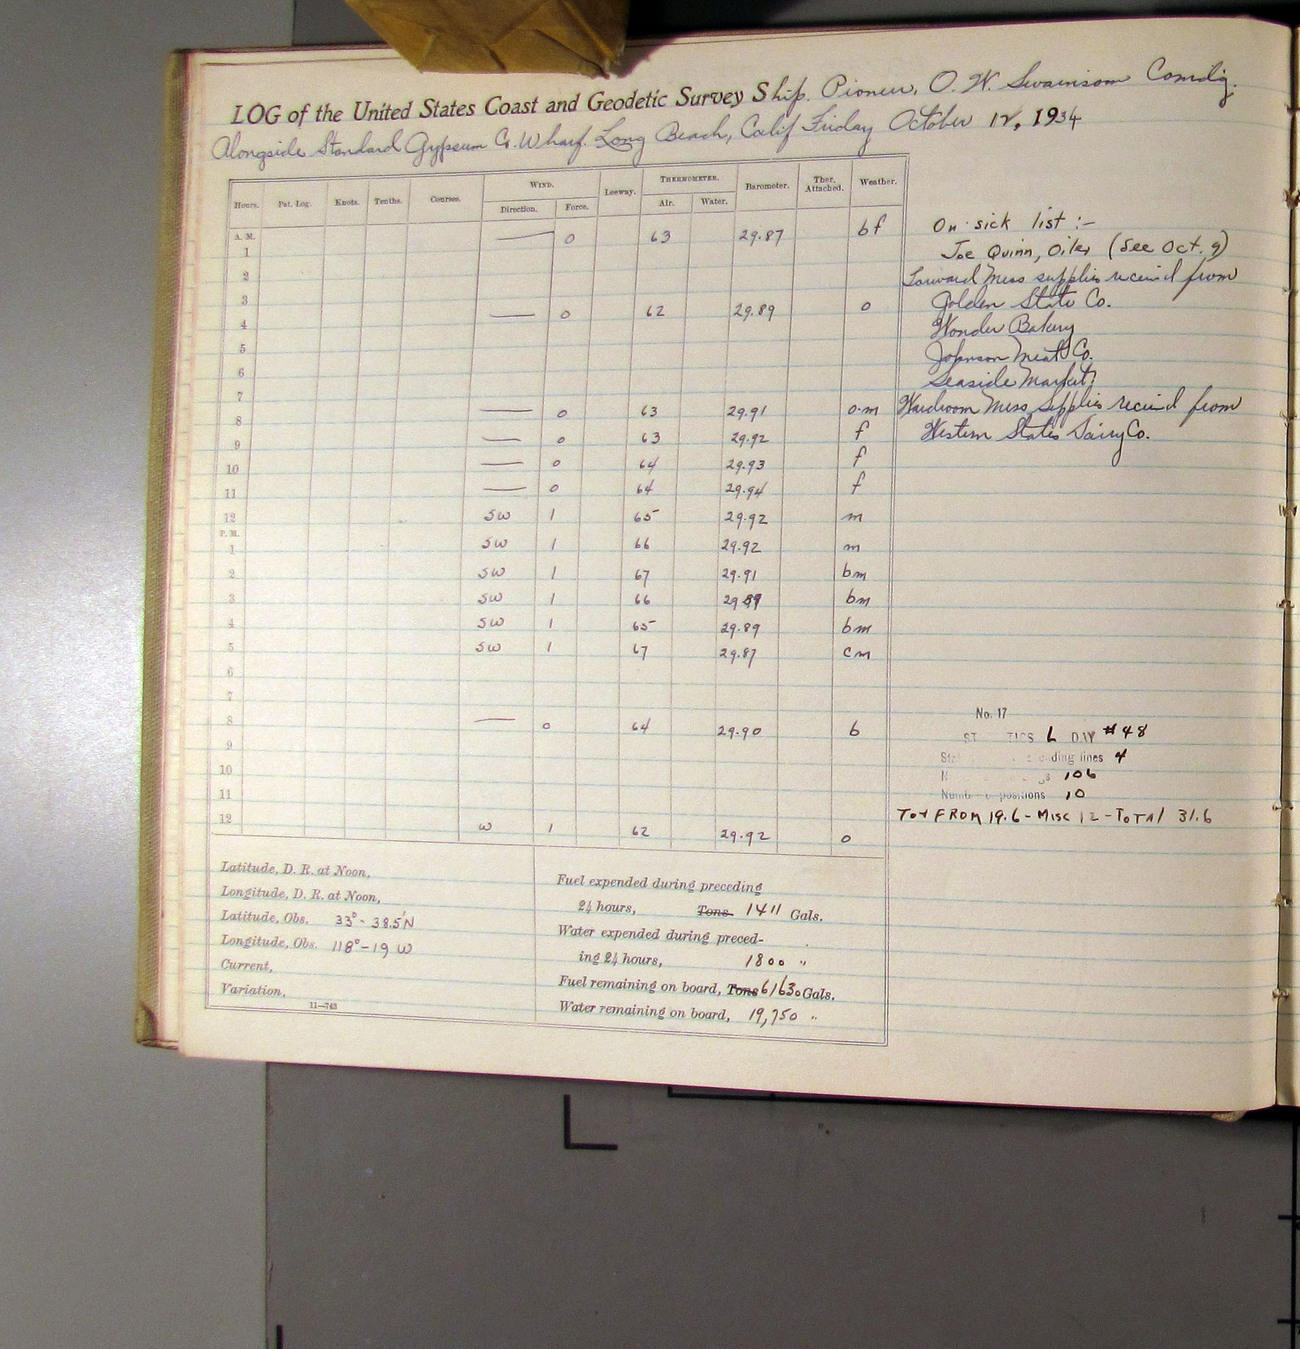 LOG of the United States Coast and Geodetic Survey Ship. Pioneer, O. W. Swainson Comdg.
Alongside Standard Gypsum Co. Wharf. Long Beach, Calif Friday October 12, 1934
Hours. Pat. Log. Knots. Tenths. Courses. WIND. Direction. Force. Leeway. THERMOMETER. Air. Water. Barometer. Ther. Attached. Weather.
A. M. — 0 63 29.87 bf
1
2
3
4 — 0 62 29.89 o
5
6
7
8 — 0 63 29.91 o.m
9 — 0 63 29.92 f
10 — 0 64 29.93 f
11 — 0 64 29.94 f
12 SW 1 65 29.92 m
P. M.
1 SW 1 66 29.92 m
2 SW 1 67 29.91 bm
3 SW 1 66 29 89 bm
4 SW 1 65 29.89 bm
5 SW 1 67 29.87 cm
6
7
8 — 0 64 29.90 b
9
10
11
12 W 1 62 29.92 o
On sick list :-
Joe Quinn, Oiler (See Oct. 9)
Forward Mess supplies received from
Golden State Co.
Wonder Bakery
Johnson Meat Co.
Seaside Market
Wardroom Mess supplies received from
Western States Dairy Co.
No. 17
L DAY #48
ding lines 4
106
positions 10
To & FROM 19.6 - Misc 12 - TOTAl 31.6
Latitude, D. R. at Noon,
Longitude, D. R. at Noon,
Latitude, Obs. 33° - 38.5'N
Longitude, Obs. 118° - 19 W
Current,
Variation,
11—743
Fuel expended during preceding
24 hours, Tons 1411 Gals.
Water expended during preced-
ing 24 hours, 1800 "
Fuel remaining on board, Tons 61630 Gals.
Water remaining on board, 19,750 "